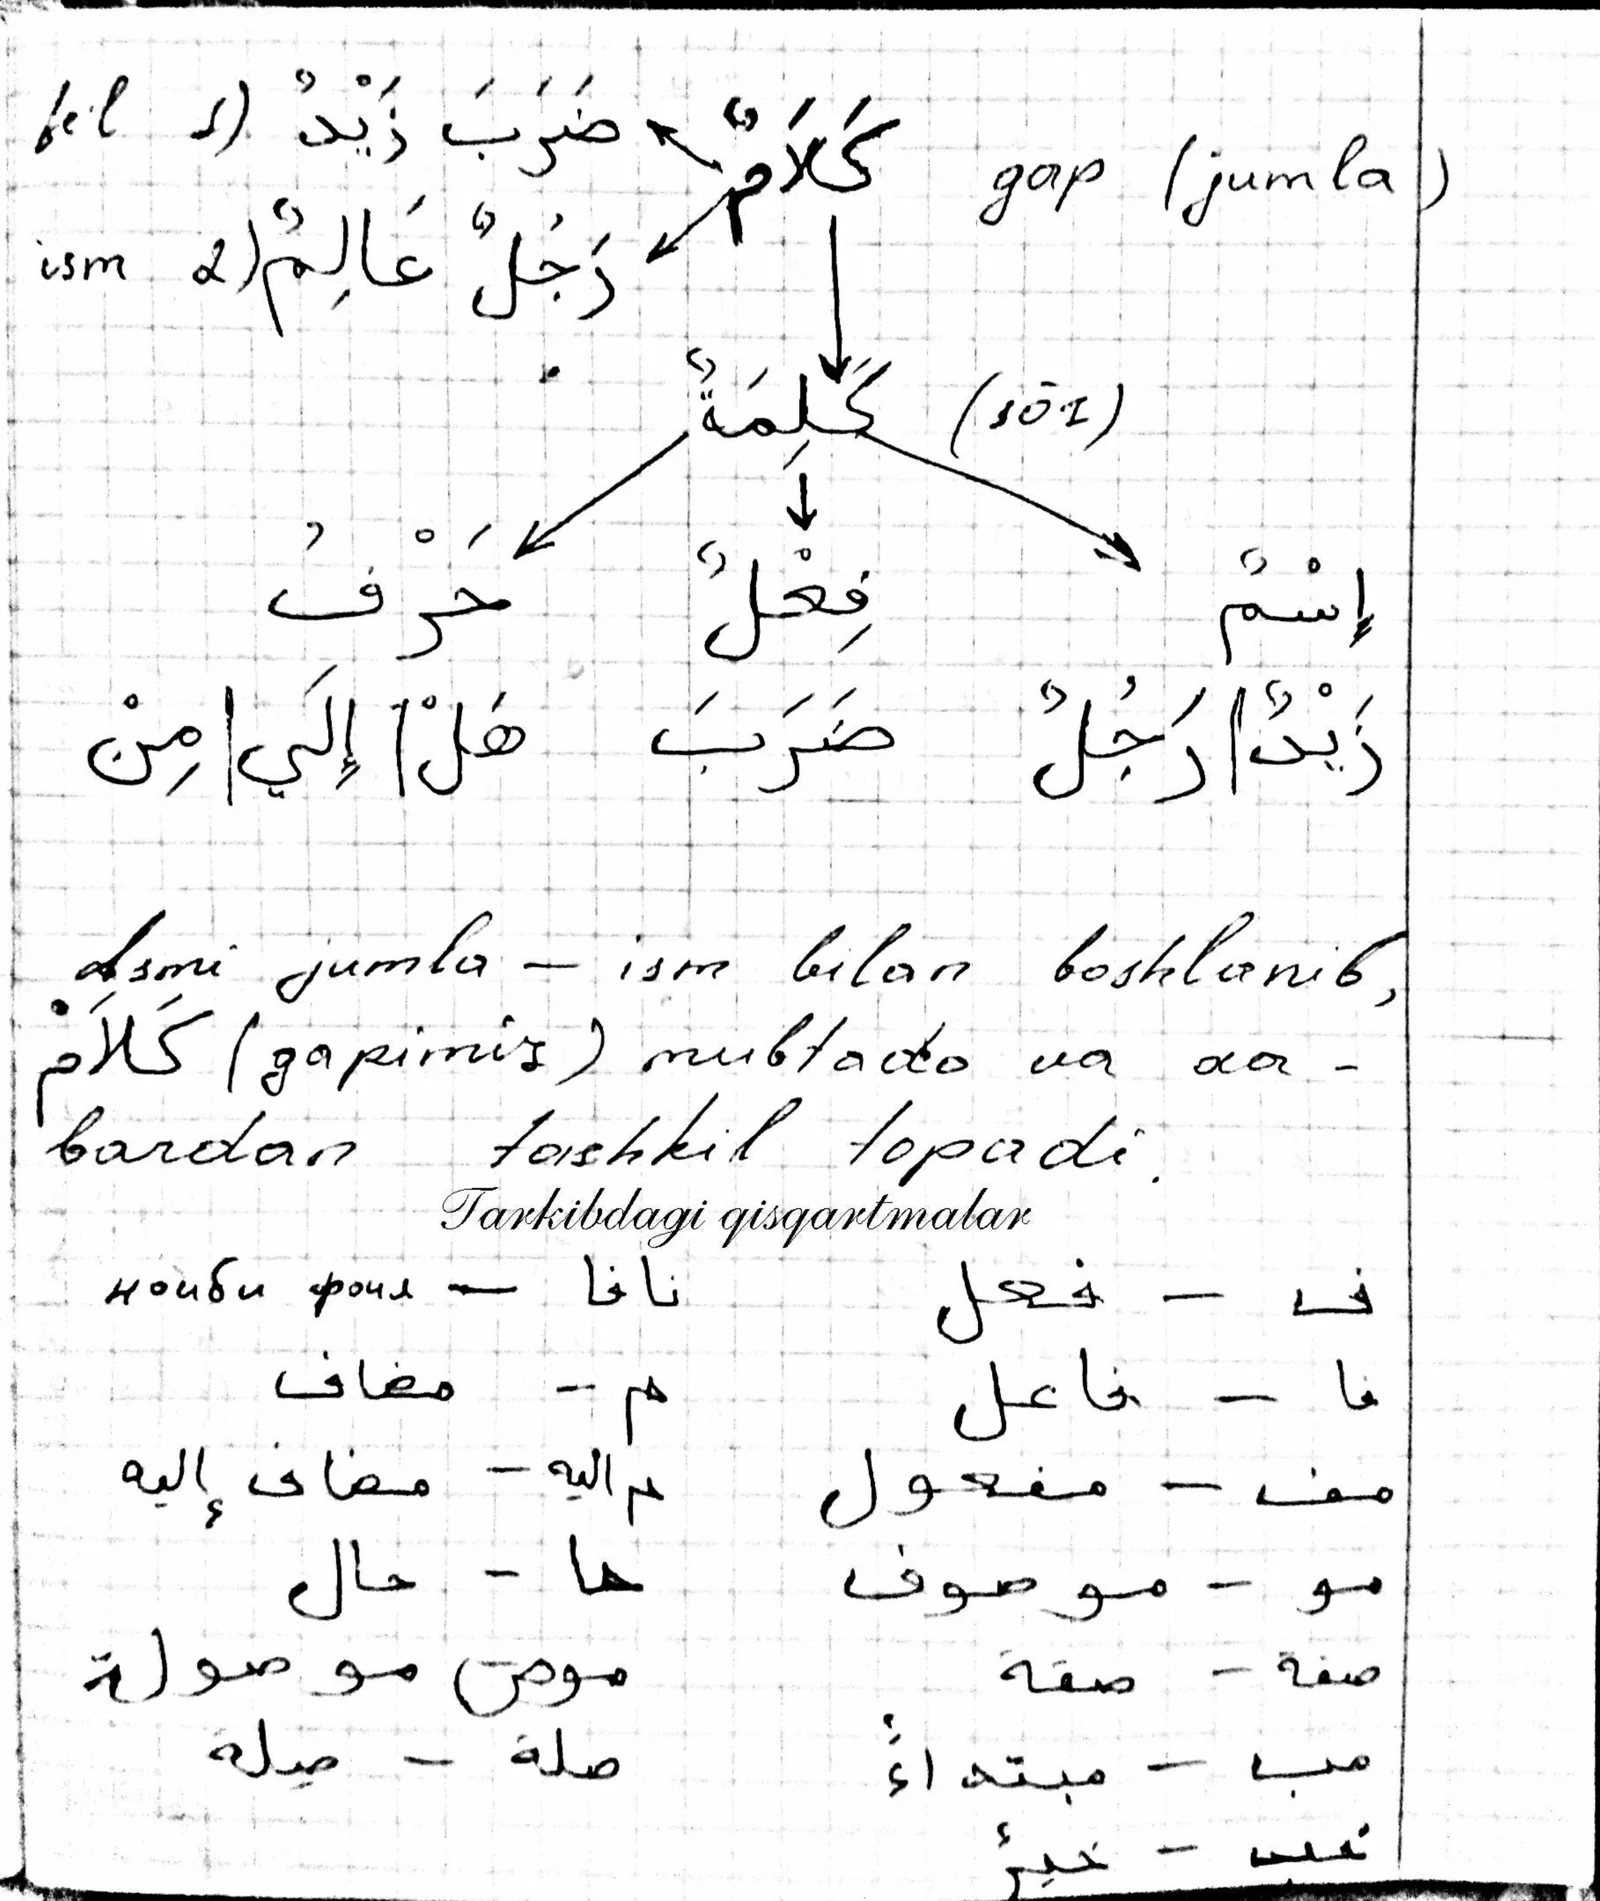 fe'l 1) ضَرَبَ زَيْدٌ كَلَامٌ gap (jumla)
ism 2) رَجُلٌ عَالِمٌ
كَلِمَةٌ (sōz)
إِسْمٌ فِعْلٌ حَرْفُ
زَيْدٌ | رَجُلٌ ضَرَبَ هَلْ | إِلَي | مِنْ
Ismi jumla – ism bilan boshlanib,
كَلَامْ (gapimiz) mubtado va xa-
bardan tashkil topadi.
Tarkibdagi qisqartmalar
ف – فعل نافا – ноиби фоил
فا – فاعل م – مضاف
مف – مفعول م اليه – مضاف إليه
مو – موصوف حا – حال
صفة – صفة موص موصولة
مب – مبتداءٌ صلة – صِلة
خب – خبرٌ